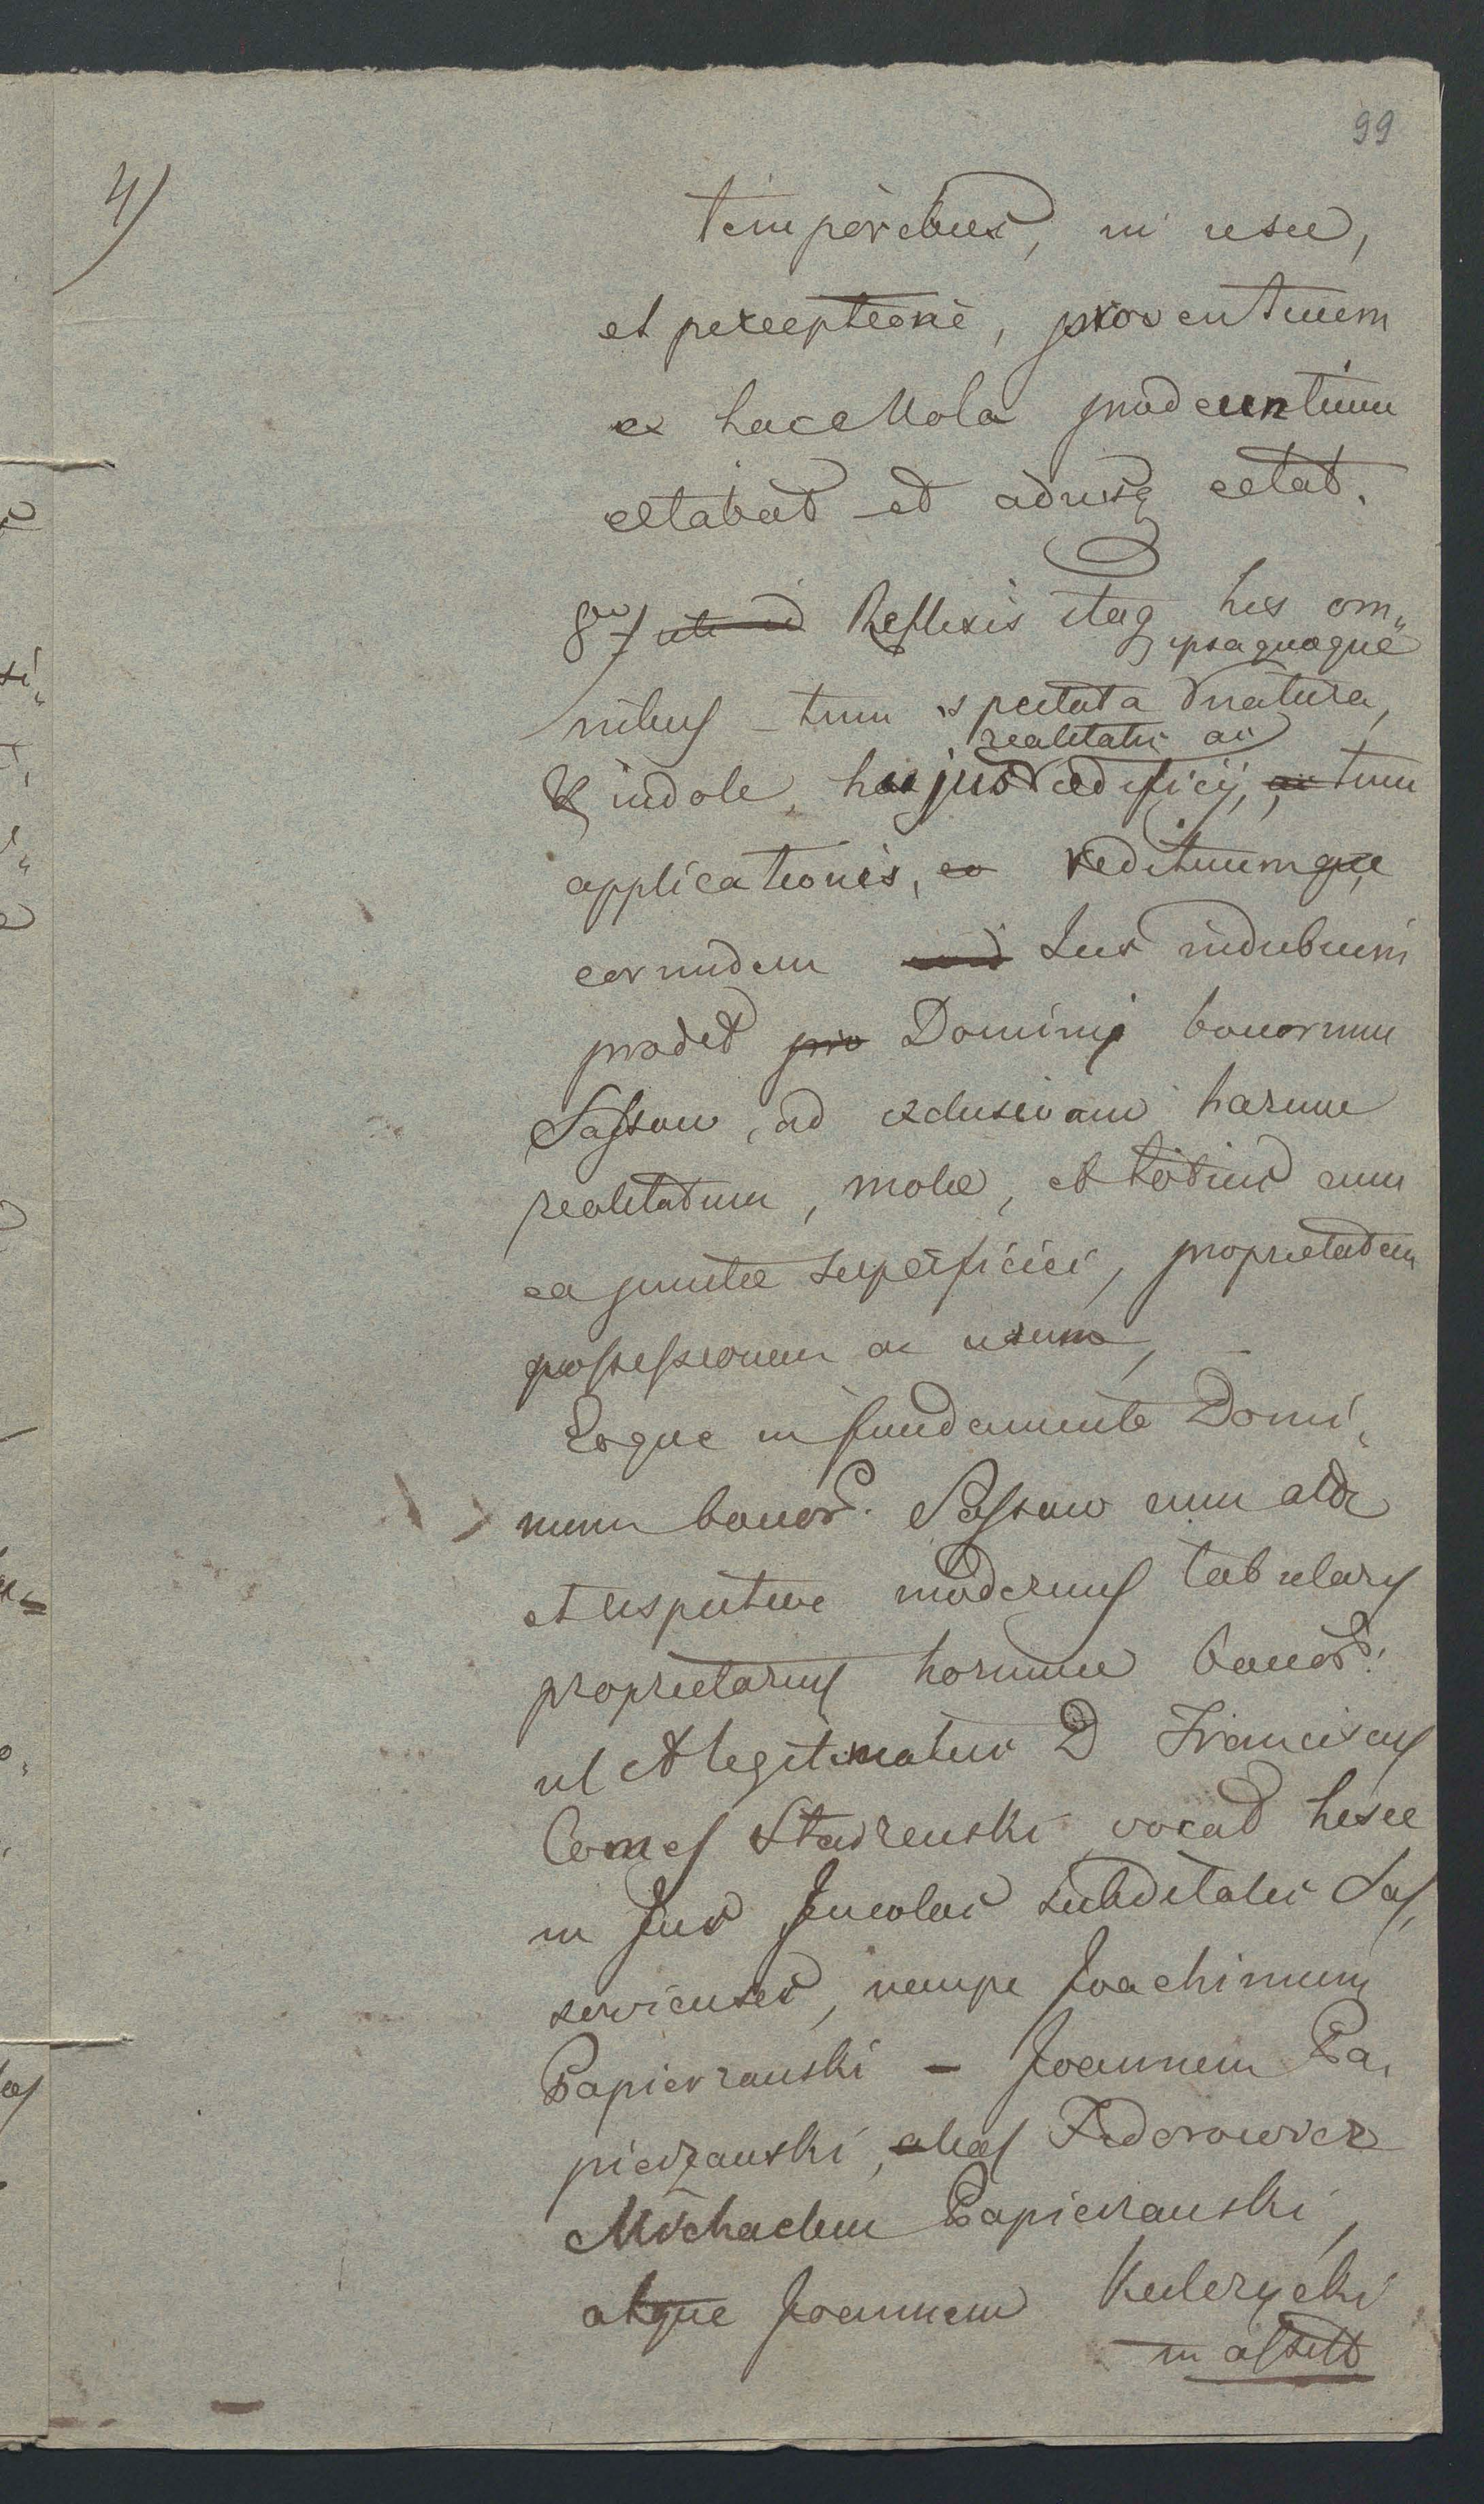 99
4/
temporibus, in usu,
et perceptione, proventuum
ex hac Mola prodeuntium
extabat et adusq extat.
8vo/ Reflexis itaq his om„
ipsa quoque
nibus tum spectata natura,
realitatis ac
& indole, hujus aedificij, ac tum
applicationis, reddituumque
eorundem Jus indubium
prodit pro Dominij bonorum
Sassow, ad exclusivam harum
realitatum, molae, et totius cum
ea junctae superficiei, proprietatem
possessionem ac usum,
Eoque in fundamento Domi„
nium bonor. Sassow cum att
et respective modernus tabularis
proprietarius horumce bonor.
ut A legitimatus D Franciscus
Comes Starzenski vocat hisce
in Jus Incolas subditales Sas„
sovienses, nempe Joachimum
Papierzanski - Joannem Pa„
pierzanski, alias Fedorowicz
Michaelem Papierzanski,
atque Joannem Kulczycki
in assist